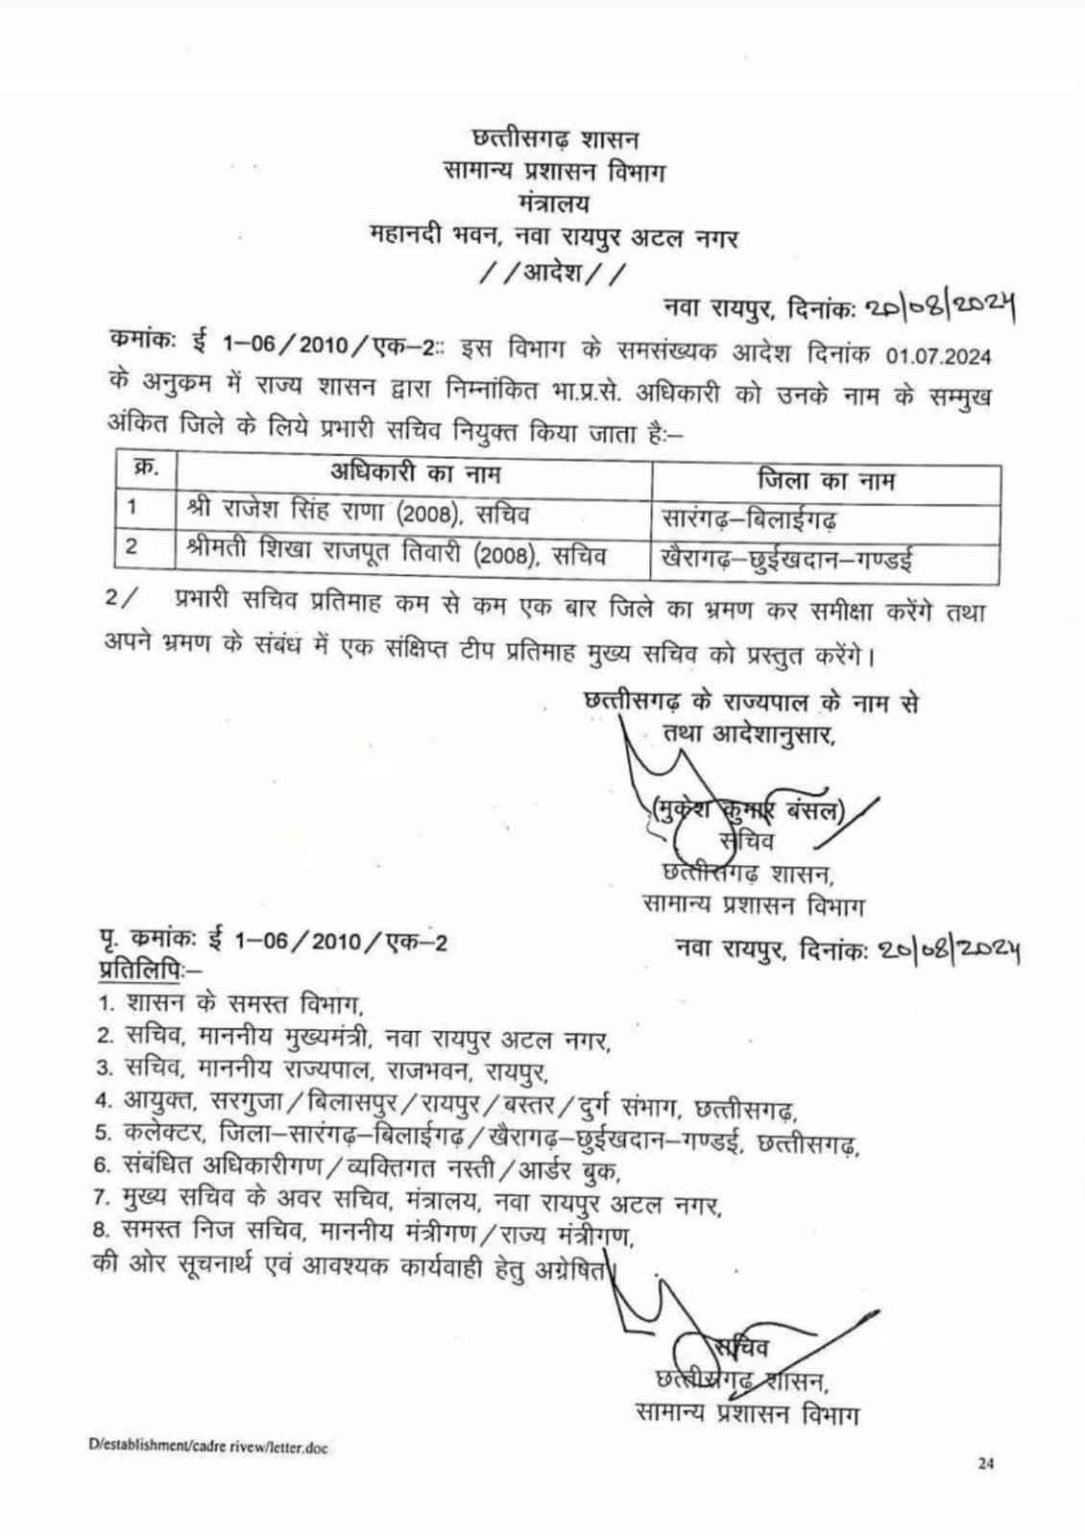 छत्तीसगढ़ शासन
सामान्य प्रशासन विभाग
मंत्रालय
महानदी भवन, नवा रायपुर अटल नगर
//आदेश//
नवा रायपुर, दिनांकः 20/08/2024
कमांकः ई 1–06/2010/एक–2:: इस विभाग के समसंख्यक आदेश दिनांक 01.07.2024
के अनुक्रम में राज्य शासन द्वारा निम्नांकित भा.प्र.से. अधिकारी को उनके नाम के सम्मुख
अंकित जिले के लिये प्रभारी सचिव नियुक्त किया जाता हैः–
क्र. अधिकारी का नाम जिला का नाम
1 श्री राजेश सिंह राणा (2008), सचिव सारंगढ़–बिलाईगढ़
2 श्रीमती शिखा राजपूत तिवारी (2008), सचिव खैरागढ़–छुईखदान–गण्डई
2/ प्रभारी सचिव प्रतिमाह कम से कम एक बार जिले का भ्रमण कर समीक्षा करेंगे तथा
अपने भ्रमण के संबंध में एक संक्षिप्त टीप प्रतिमाह मुख्य सचिव को प्रस्तुत करेंगे।
छत्तीसगढ़ के राज्यपाल के नाम से
तथा आदेशानुसार,
(मुकेश कुमार बंसल)
सचिव
छत्तीसगढ़ शासन,
सामान्य प्रशासन विभाग
पृ. कमांकः ई 1–06/2010/एक–2
नवा रायपुर, दिनांकः 20/08/2024
प्रतिलिपिः–
1. शासन के समस्त विभाग,
2. सचिव, माननीय मुख्यमंत्री, नवा रायपुर अटल नगर,
3. सचिव, माननीय राज्यपाल, राजभवन, रायपुर,
4. आयुक्त, सरगुजा/बिलासपुर/रायपुर/बस्तर/दुर्ग संभाग, छत्तीसगढ़,
5. कलेक्टर, जिला–सारंगढ़–बिलाईगढ़/खैरागढ़–छुईखदान–गण्डई, छत्तीसगढ़,
6. संबंधित अधिकारीगण/व्यक्तिगत नस्ती/आर्डर बुक,
7. मुख्य सचिव के अवर सचिव, मंत्रालय, नवा रायपुर अटल नगर,
8. समस्त निज सचिव, माननीय मंत्रीगण/राज्य मंत्रीगण,
की ओर सूचनार्थ एवं आवश्यक कार्यवाही हेतु अग्रेषित।
सचिव
छत्तीसगढ़ शासन,
सामान्य प्रशासन विभाग
D/establishment/cadre rivew/letter.doc
24